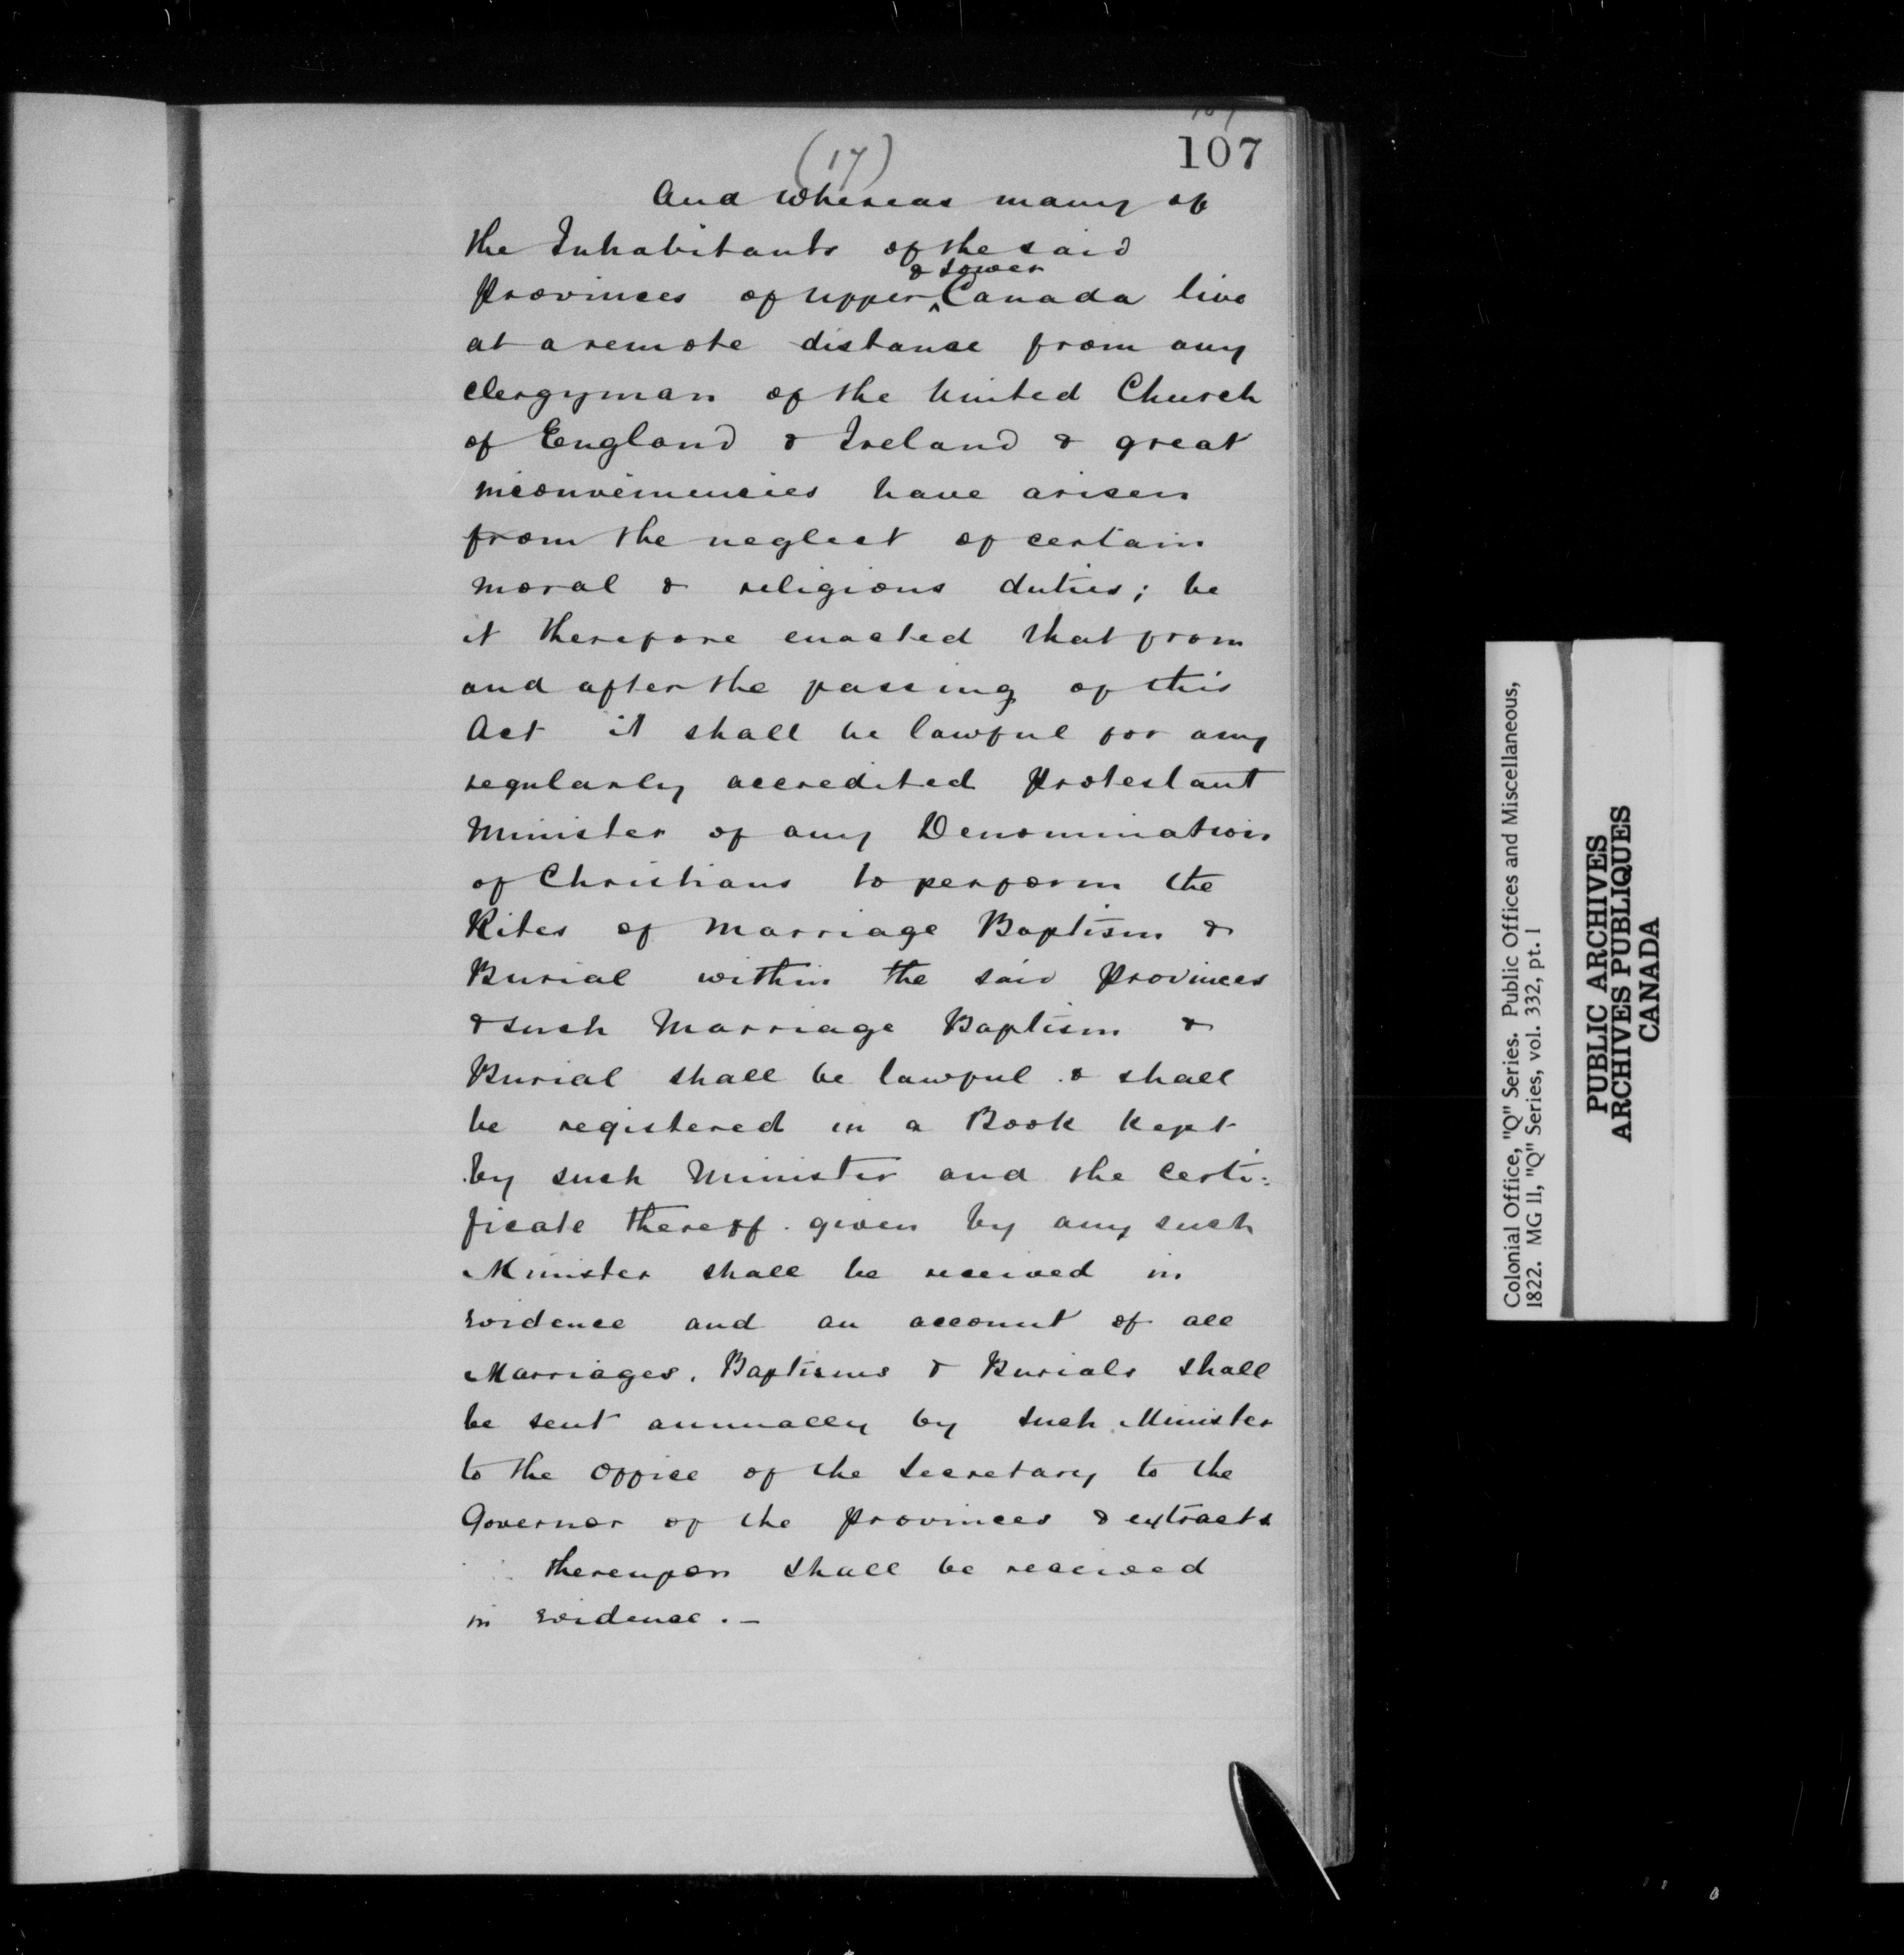 107
(17)
And whereas many of
the Inhabitants of the said
Provinces of Upper & Lower Canada live
at a remote distance from any
clergyman of the United Church
of England & Ireland & great
inconveniencies have arisen
from the neglect of certain
moral & religious duties; be
it therefore enacted that from
and after the passing of this
Act it shall be lawful for any
regularly accredited Protestant
Minister of any Denomination
of Christians to perform the
Rites of Marriage Baptism &
Burial within the said Provinces
& such Marriage Baptism &
Burial shall be lawful & shall
be registered in a Book kept
by such Minister and the Certi-
ficate thereof given by any such
Minister shall be received in
evidence and an account of all
Marriages, Baptisms & Burials shall
be sent annually by such Minister
to the office of the Secretary to the
Governor of the Provinces & extracts
thereupon shall be received
in evidence. —
Colonial Office, "Q" Series. Public Offices and Miscellaneous,
1822. MG 11, "Q" Series, vol. 332, pt. 1
PUBLIC ARCHIVES
ARCHIVES PUBLIQUES
CANADA